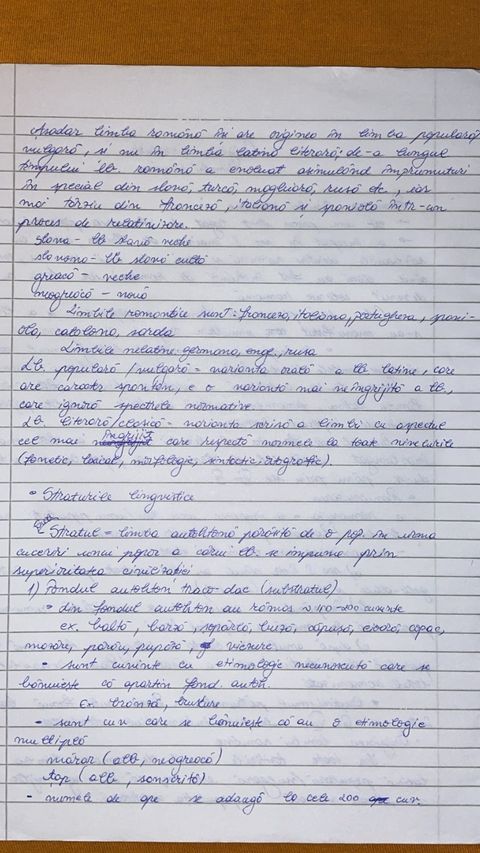 Așadar limba română își are originea în limba populară,
vulgară, și nu în limba latină literară; de-a lungul
timpului lb. română a evoluat asimilând împrumuturi
în special din slavă, turcă, maghiară, rusă etc, iar
mai târziu din franceză, italiană și spaniolă într-un
proces de relatinizare.
slava - lb slavă veche
slavona - lb slavă cultă
greacă - veche
neogreacă - nouă
Limbile romanice sunt: franceza, italiana, portugheza, spani-
ola, catalana, sarda
Limbile nelatine: germana, engl., rusa
Lb. populară /vulgară = varianta orală a lb latine, care
are caracter spontan, e o variantă mai neîngrijită a lb,
care ignoră aspectele normative.
Lb. literară/clasică - varianta scrisă a limbii cu aspectul
cel mai îngrijit care respectă normele la toate nivelurile
(fonetic, lexical, morfologic, sintactic, ortografic).
• Straturile lingvistice
Stratul = limba autohtonă părăsită de o pop. în urma
cuceririi unui popor a cărui lb. se impune prin
superioritatea civilizației
1) Fondul autohton traco-dac (substratul)
• din fondul autohton au rămas ≈ 170-200 cuvinte
ex. baltă, barză, șopârlă, buză, căpușă, cioară, copac,
mazăre, pârâu, pupăză, viezure
• sunt cuvinte cu etimologie necunoscută care se
bănuiește că aparțin fond. autoh.
Ex. brânză, brusture
• sunt cuv care se bănuiește că au o etimologie
multiplă
mărar (alb, neogreacă)
țap (alb, sanscrită)
- numele de ape se adaugă la cele 200 cuv.